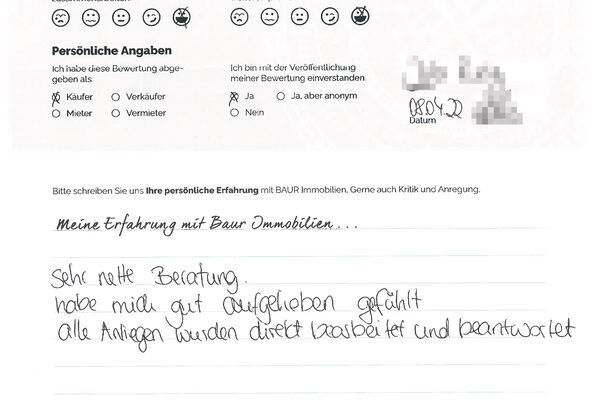 Persönliche Angaben
Ich habe diese Bewertung abge-
geben als:
Käufer
Verkäufer
Mieter
Vermieter
Ich bin mit der Veröffentlichung
meiner Bewertung einverstanden.
Ja
Ja, aber anonym
Nein
08.04.22
Datum
Bitte schreiben Sie uns Ihre persönliche Erfahrung mit BAUR Immobilien. Gerne auch Kritik und Anregung.
Meine Erfahrung mit Baur Immobilien...
Sehr nette Beratung.
habe mich gut aufgehoben gefühlt
alle Anliegen wurden direkt bearbeitet und beantwortet